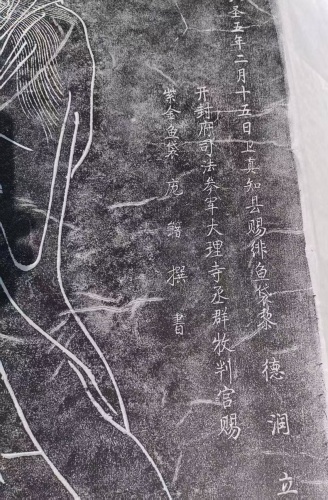 圣五年二月十五日卫真知县赐绯鱼袋黎德润立
开封府司法参军大理寺丞群牧判官赐
紫金鱼袋 庞籍 撰 书